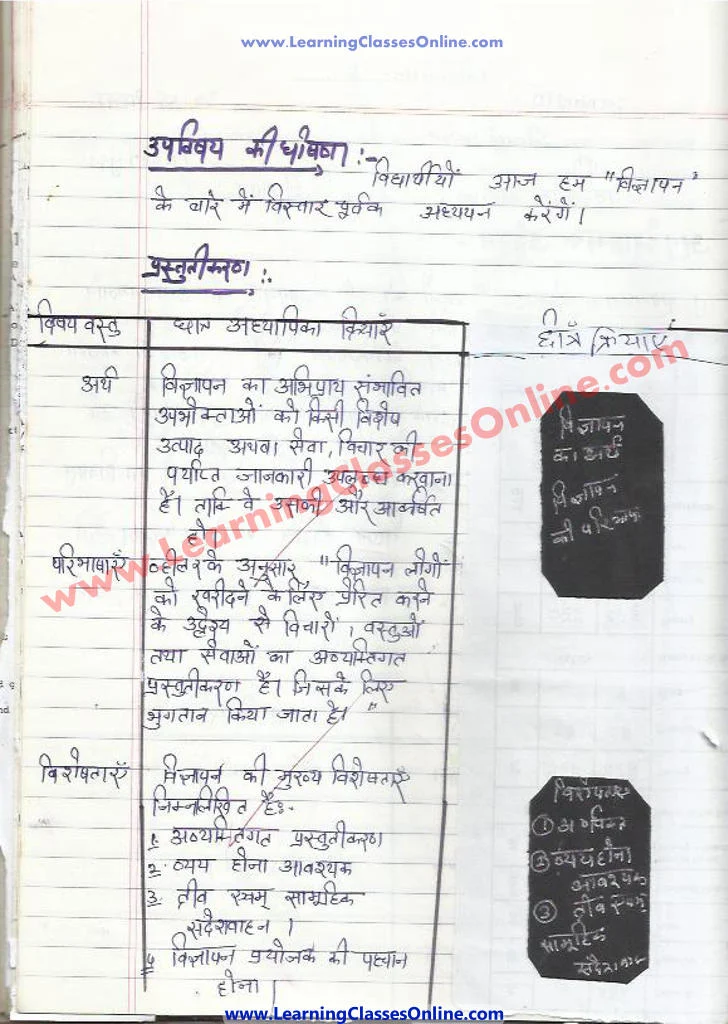 www.LearningClassesOnline.com
उपविषय की घोषणा :-
विद्यार्थीयों आज हम "विज्ञापन"
के बारे में विस्तार पूर्वक अध्ययन करेंगें।
प्रस्तुतीकरण :-
विषय वस्तु छात्र अध्यापिका क्रियाएँ छात्र क्रियाएँ
अर्थ विज्ञापन का अभिप्राय संभावित
उपभोक्ताओं को किसी विशेष
उत्पाद अथवा सेवा, विचार की
पर्याप्त जानकारी उपलब्ध करवाना
है। ताकि वे उसकी और आकर्षित
हो।
विज्ञापन
का अर्थ
विज्ञापन
की परिभाषा
www.LearningClassesOnline.com
परिभाषाएँ व्हीलर के अनुसार "विज्ञापन लोगों
को खरीदने के लिए प्रेरित करने
के उद्देश्य से विचारों, वस्तुओं
तथा सेवाओं का अव्यक्तिगत
प्रस्तुतीकरण है। जिसके लिए
भुगतान किया जाता है।"
विशेषताएँ विज्ञापन की मुख्य विशेषताएँ
निम्नलिखित है:-
1. अव्यक्तिगत प्रस्तुतीकरण
2. व्यय होना आवश्यक
3. तीव एवम् सामूहिक
संदेशवाहन।
4. विज्ञापन प्रयोजक की पहचान
होना।
विशेषताएँ
①
② व्यय होना
आवश्यक
③ तीव एवम्
सामूहिक
www.LearningClassesOnline.com